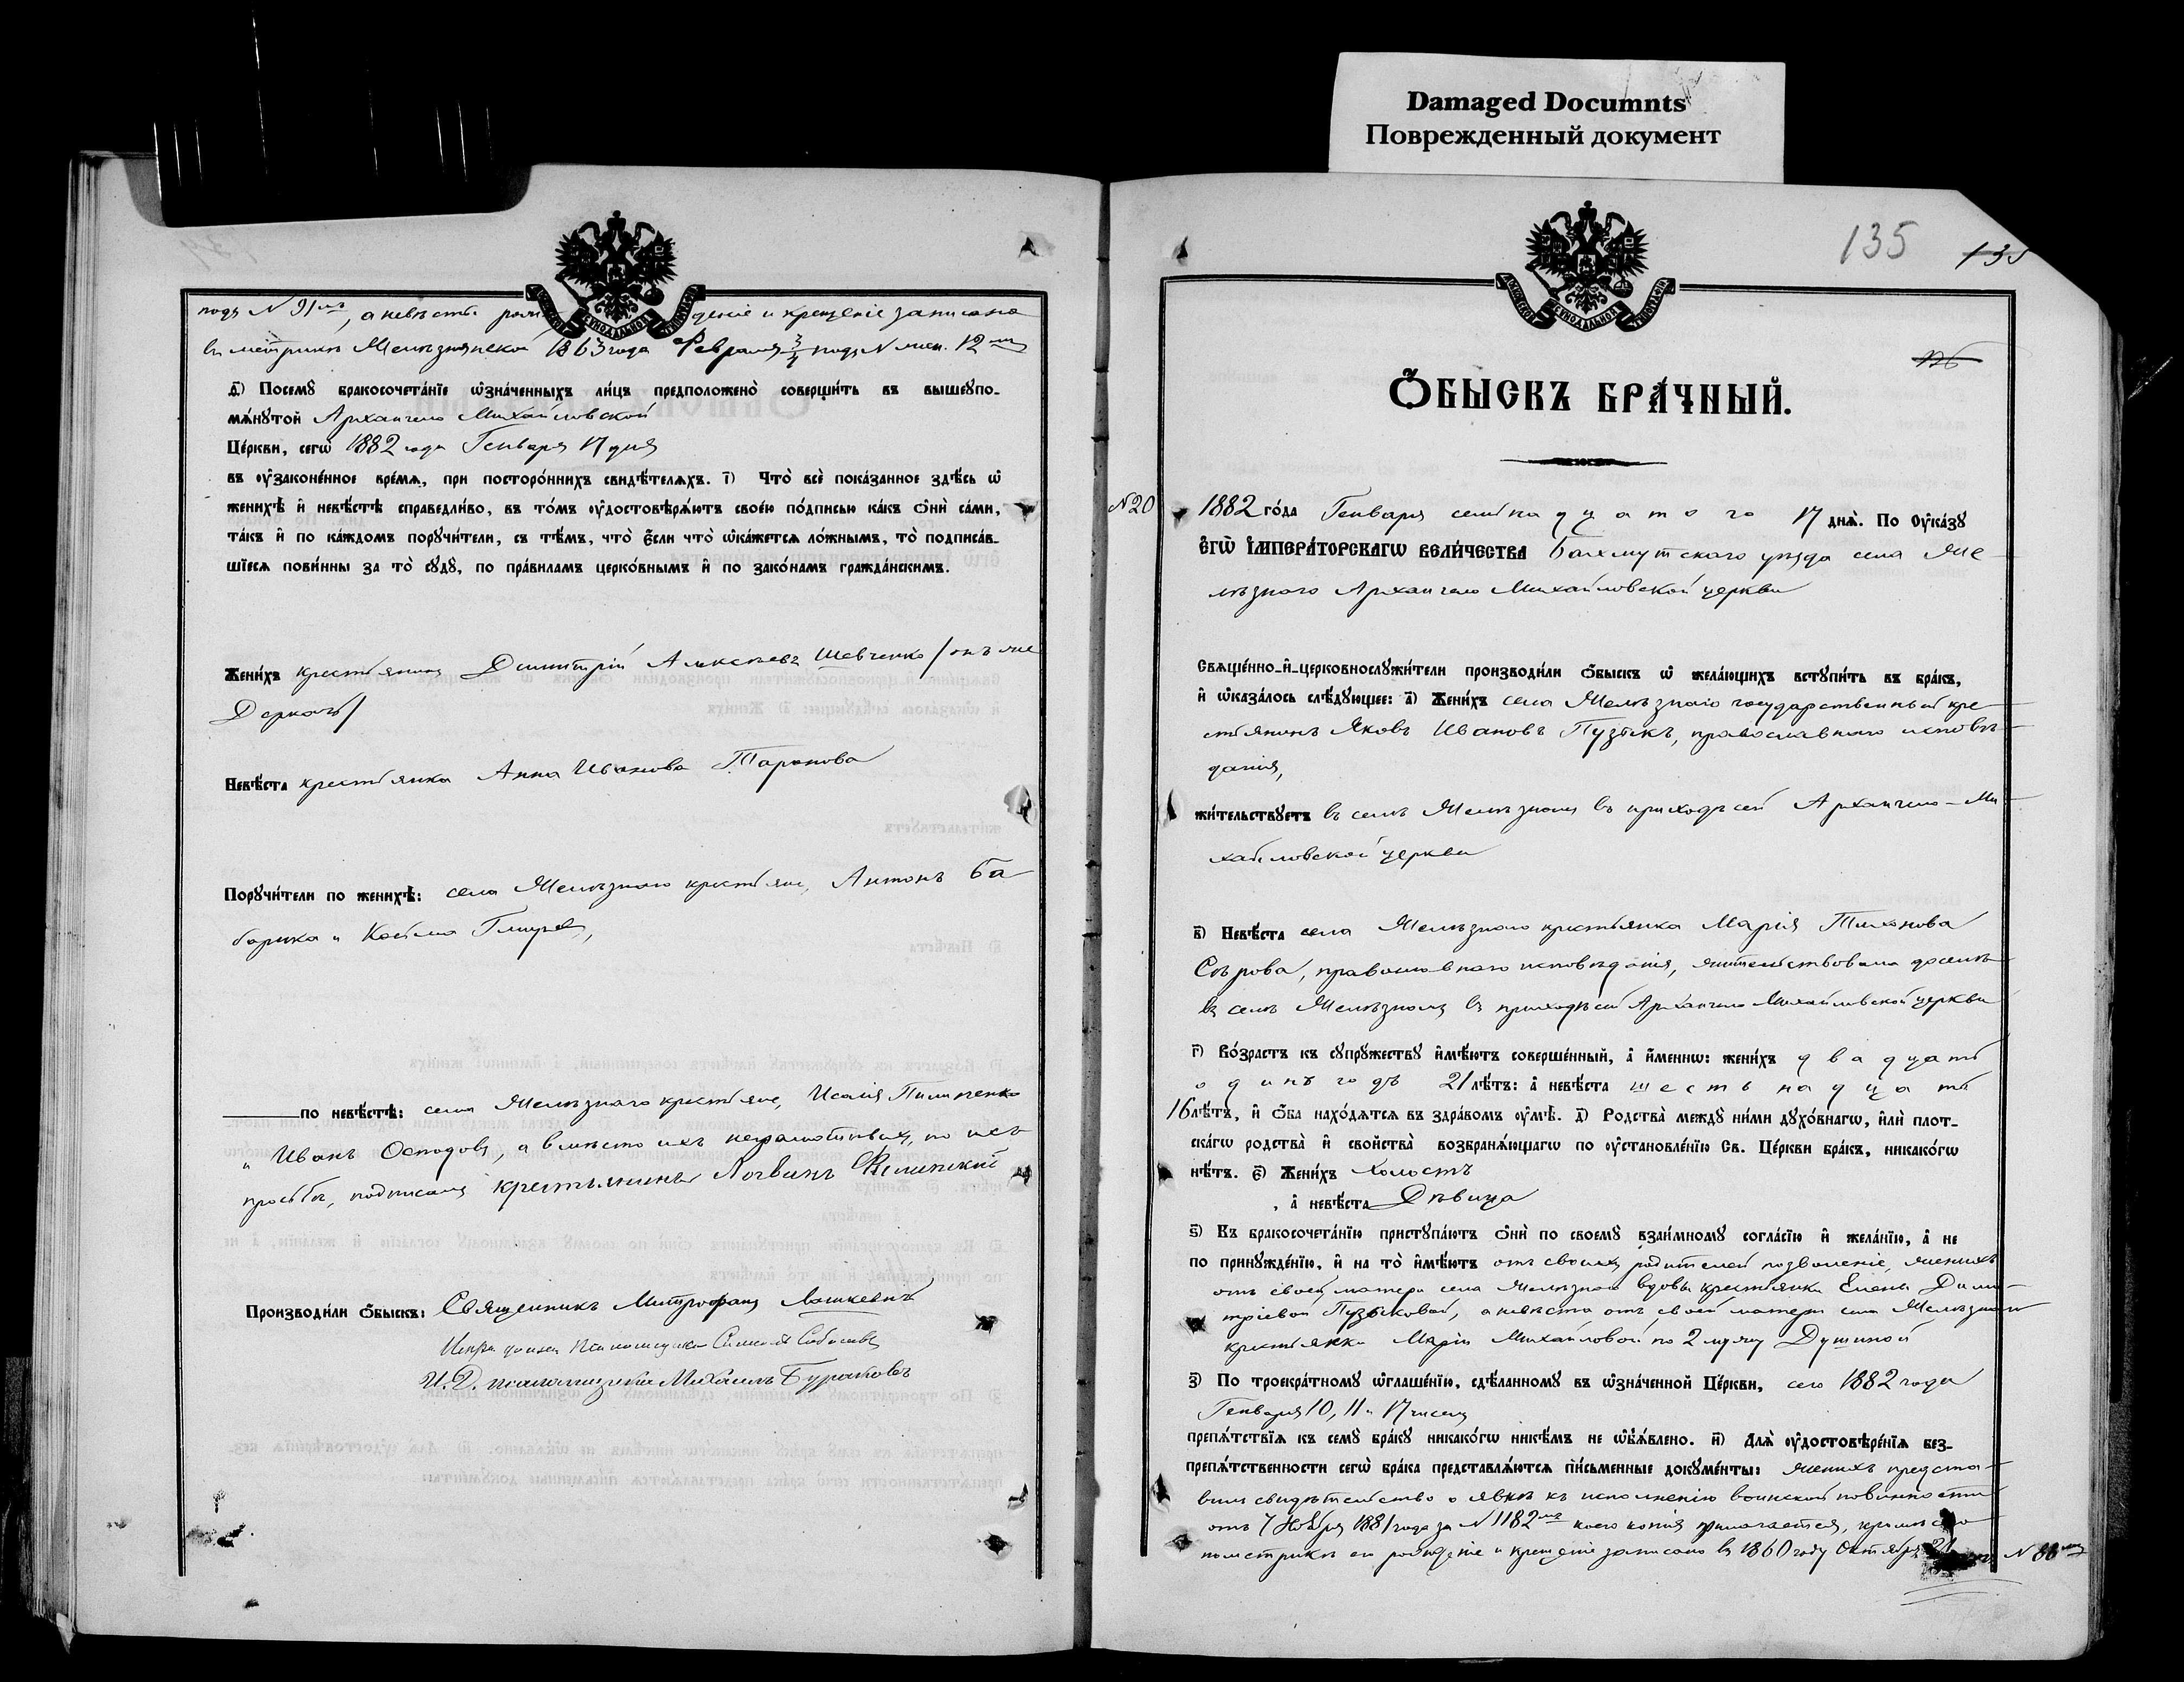 Damaged Documnts
Поврежденный документ
подъ N 91мъ, а невѣсты рож дение и крещеніе записано
въ метрикѣ Желѣзнянской 1863 года Февраля 3/4 подъ N жен. 12мъ
д҃) Посемꙋ бракосочета́нїе ѡ҆зна́ченныхъ ли́цъ предположено̀ соверши́ть въ вышеꙋпо-
мѧ́нꙋтой Архангело Михайловской
Це́ркви, сегѡ̀ 1882 года Генваря 17 дня
въ ᲂу҆законе́нное вре́мѧ, при посторо́ннихъ свидѣ́телѧхъ. і҃) Что̀ всѐ пока́занное здѣ́сь ѡ҆
женихѣ̀ и҆ невѣ́стѣ справедли́во, въ то́мъ ᲂу҆достовѣрѧ́ютъ свое́ю по́дписью ка́къ ѻ҆нѝ са́ми,
та́къ и҆ по ка́ждомъ порꙋчи́тели, съ тѣ́мъ, что̀ є҆́сли что̀ ѡ҆ка́жетсѧ ло́жнымъ, то̀ подписа́в-
шїесѧ пови́нны за то̀ сꙋдꙋ̀, по пра́виламъ церко́внымъ и҆ по зако́намъ гражда́нскимъ.
Жени́хъ крестьянинъ Димитрій Алексѣевъ Шевченко /онъ же
Деркачъ/
Невѣ́ста крестьянка Анна Иванова Таранова
Порꙋчи́тели по женихѣ̀: села Желѣзнаго крестьяне, Антонъ Ба
барика и Косьма
по невѣ́стѣ: села Желѣзнаго крестьяне, Исаія Пилипенко
и Иванъ Осподовъ, а вмѣсто ихъ неграмотныхъ, по ихъ
просьбѣ, подписалъ крестьянинъ Логвинъ Филипскій
Производи́ли ѻ҆́быскъ: Священникъ Митрофанъ Лошкевичъ
Псаломщикъ
И. Д. псаломщика Михаилъ Бураковъ
135 135
126
Ѻ҆́БЫСКЪ БРА́ЧНЫЙ.
N 20
1882 го́да Генваря семьнадцатого 17 днѧ̀. По ᲂу҆ка́зꙋ
Є҆ГѠ̀ И҆МПЕРА́ТОРСКАГѠ ВЕЛИ́ЧЕСТВА Бахмутскаго уѣзда села Же
лѣзнаго Архангело Михайловской церкви
Свѧще́нно-и҆-церковнослꙋжи́тели производи́ли ѻ҆́быскъ ѡ҆ жела́ющихъ встꙋпи́ть въ бра́къ,
и҆ ѡ҆каза́лось слѣ́дꙋющее: а҃) Жени́хъ села Желѣзнаго государственный кре
стьянинъ Яковъ Ивановъ Пузыкъ, православнаго исповѣ
данія,
жи́тельствꙋетъ въ селѣ Желѣзномъ въ приходѣ сей Архангело-Ми
хайловской церкви
в҃) Невѣ́ста села Желѣзнаго крестьянка Марія Тихонова
Сѣрова, православнаго исповѣданія, жительствовала доселѣ
въ селѣ Желѣзномъ въ приходѣ сей Архангело Михайловской церкви
г҃) Во́зрастъ къ сꙋпрꙋ́жествꙋ и҆мѣ́ютъ соверше́нный, а҆ и҆́меннѡ: жени́хъ двадцать
одинъ годъ 21 лѣ́тъ: а҆ невѣ́ста шестьнадцать
16 лѣ́тъ, и҆ ѻ҆́ба нахо́дѧтсѧ въ здра́вомъ ᲂу҆мѣ̀. д҃) Родства̀ междꙋ̀ ни́ми дꙋхо́внагѡ, и҆лѝ плот-
ска́гѡ родства̀ и҆ сво́йства̀ возбранѧ́ющагѡ по ᲂу҆становле́нїю Св. Це́ркви бра́къ, никако́гѡ
нѣ́тъ. є҃) Жени́хъ холостъ
, а҆ невѣ́ста Дѣвица
ѕ҃) Къ бракосочета́нїю пристꙋпа́ютъ ѻ҆нѝ по своемꙋ̀ взаи́мномꙋ согла́сїю и҆ жела́нїю, а҆ не
по принꙋжде́нїю, и҆ на то̀ и҆мѣ́ютъ отъ своихъ родителей позволеніе, женихъ
отъ своей матери села Желѣзнаго вдовы крестьянки Елены Дими
тріевой Пузыковой, а невѣста отъ своей матери села Желѣзнаго
крестьянки Маріи Михайловой по 2 мужу Душиной
з҃) По троекра́тномꙋ ѡ҆глаше́нїю, сдѣ́ланномꙋ въ ѡ҆зна́ченной Це́ркви, сего 1882 года
Генваря 10, 11 и 17 чиселъ
препѧ́тствїѧ къ семꙋ̀ бра́кꙋ никако́гѡ никѣ́мъ не ѡ҆б̾ѧ́влено. и҃) Длѧ̀ ᲂу҆достовѣре́нїѧ без-
препѧ́тственности сегѡ̀ бра́ка представлѧ́ютсѧ пи́сьменные докꙋме́нты: женихъ предста
вилъ свидѣтельство о явкѣ къ исполненію воинской повинности
отъ 7 Ноября 1881 года за N 1182мъ коего копія прилагается, кромѣ сего
по метрикѣ его рожденіе и крещеніе записано въ 1860 году Октября 21 N 88мъ